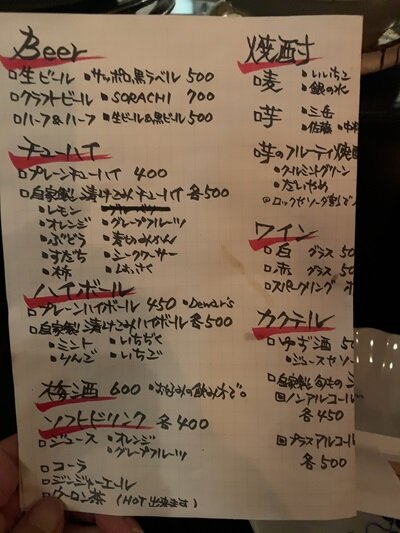 Beer
□生ビール ・サッポロ黒ラベル 500
□クラフトビール ・SORACHI 700
□ハーフ&ハーフ ・生ビール&黒ビール 500
チューハイ
□プレーンチューハイ 400
□自家製漬けこみチューハイ 各500
・レモン
・オレンジ ・グレープフルーツ
・ぶどう ・青むきみかん
・すだち ・シークワーサー
・柿 ・はっさく
ハイボール
□プレーンハイボール 450 ・Dewar's
□自家製漬けこみハイボール 各500
・ミント ・いちぢく
・りんご ・いちご
梅酒 600 ・お好みの飲み方で。
ソフトドリンク 各400
□ジュース ・オレンジ
・グレープフルーツ
□コーラ
□ジンジャーエール
□ウーロン茶 (HOT出来ます)
焼酎
□麦 ・いいちこ
・銀の水
□芋 ・三岳
・佐藤
□芋のフルーティ焼酎
・だいやめ
◎ロックやソーダ割で
ワイン
□白 グラス 50
□赤 グラス 50
□スパークリング
カクテル
□ゆず酒 50
・ジュースやソー
□自家製旬の
□ノンアルコール
各450
□プラスアルコール
各500